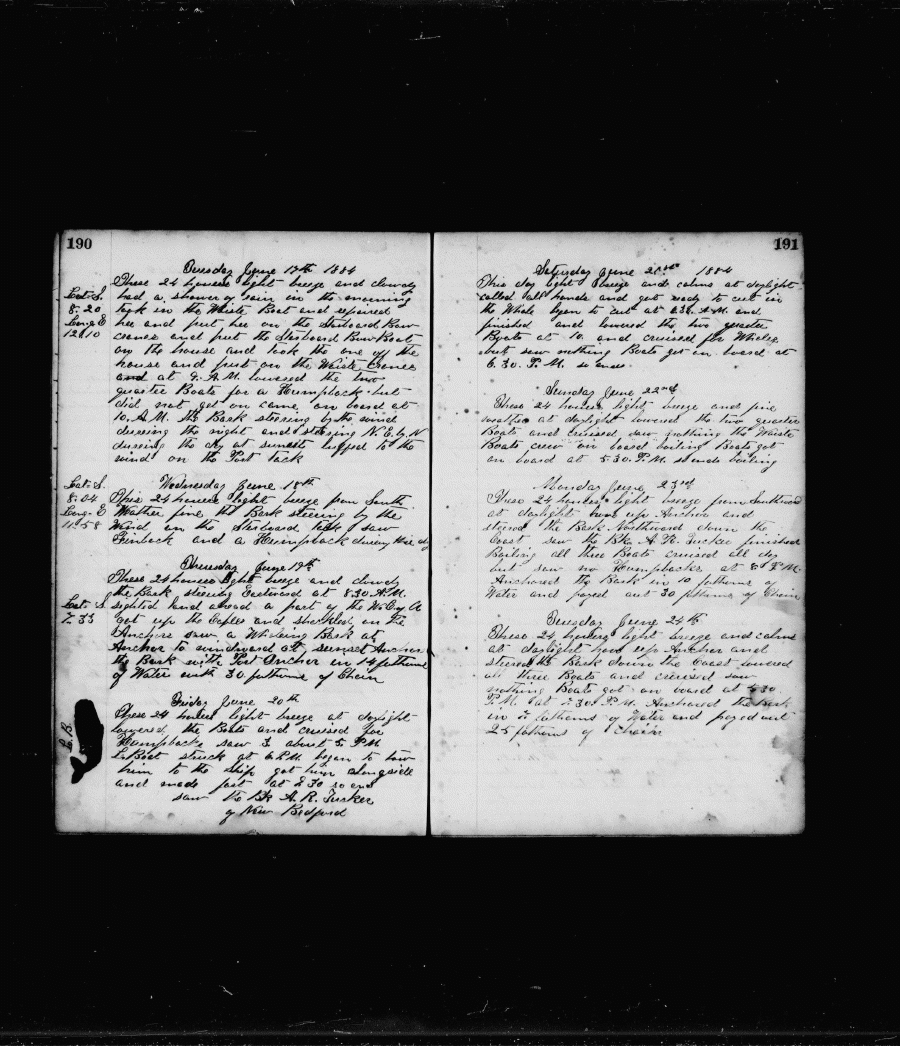 190
Tuesday June 17th 1884
These 24 hours light breeze and cloudy
Lat. S.
had a shower of rain in the morning
8.20
took in the Waist Boat and repaired
Long. E
her and put her on the Starboard Bow
12.10
cranes and put the Starboard Bow Boat
on the house and took the one off the
house and put on the Waist Cranes
and at 9. A.M. lowered the two
quarter Boats for a Humpback but
did not get on came on board at
10. A.M. the Bark steering by the wind
dureing the night and steering N.E. by N
dureing the day at sunsett luffed to the
wind on the Port tack
Lat. S.
Wednesday June 18th
8.04
These 24 hours light breeze from South
Long. E
Wather fine the Bark steering by the
11.58
Wind on the Starboard tack saw
Finback and a Humpback during the day
Thursday June 19th
These 24 hours light breeze and cloudy
the Bark steering Eastward at 8.30 A.M.
Lat. S.
sighted land ahead a part of the W. Coy A
7.33
got up the Cables and shackled on the
Anchors saw a Whaleing Bark at
Anchor to windward at sunset Anchored
the Bark with Port Anchor in 14 fathoms
of Water with 30 fathoms of Chain
Friday June 20th
These 24 hours light breeze at daylight
lowered the Boats and cruised for
L. B.
Humpbacks saw 3 about 5 P.M
L. Boat struck at 6 P.M. began to tow
him to the Ship got him alongside
and made fast at 8.30 so ends
saw the Bk A. R. Tucker
of New Bedford
191
Saturday June 21st 1884
This day light breeze and calms at daylight
called all hands and got ready to cut in
the Whale began to cut at A.M. and
finished and lowered the two quarter
Boats at 10. and cruised for Whales
but saw nothing Boats got on board at
6.30. P.M. so ends
Sunday June 22nd
These 24 hours light breeze and fine
weather at daylight lowered the two quarter
Boats and cruised saw nothing the Waist
Boats crew on board boiling Boats got
on board at 5.30. P.M. so ends boiling
Monday June 23rd
These 24 hours light breeze from Southward
at daylight hove up Anchor and
steered the Bark Northward down the
Coast saw the Bk. A. R. Tucker finished
Boiling all three Boats cruised all day
but saw no Humpbacks at 6 P.M.
Anchored the Bark in 10 fathoms of
Water and payed out 30 fathoms of Chain
Tuesday June 24th
These 24 hours light breeze and calms
at daylight hove up Anchor and
steered the Bark down the Coast lowered
all three Boats and cruised saw
nothing Boats got on board at 4.30
P.M. at 7.30. P.M. Anchored the Bark
in 7 fathoms of Water and payed out
25 fathoms of Chain